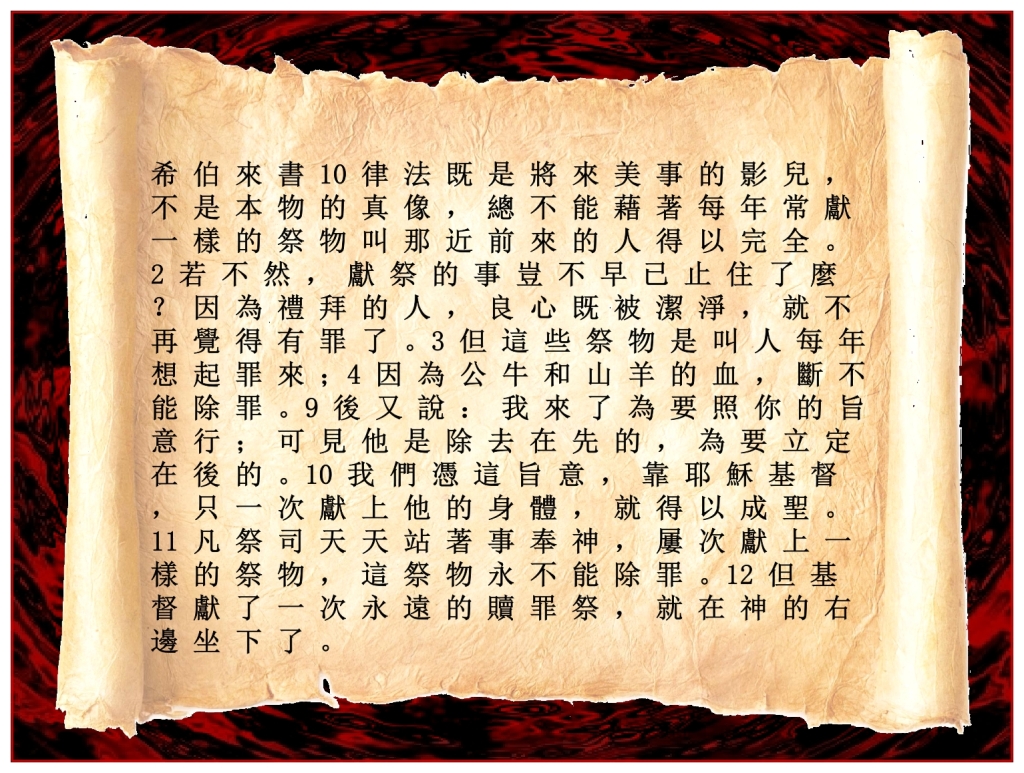 希伯來書10律法既是將來美事的影兒，
不是本物的真像，總不能藉著每年常獻
一樣的祭物叫那近前來的人得以完全。
2若不然，獻祭的事豈不早已止住了麼
？因為禮拜的人，良心既被潔淨，就不
再覺得有罪了。3但這些祭物是叫人每年
想起罪來；4因為公牛和山羊的血，斷不
能除罪。9後又說：我來了為要照你的旨
意行；可見他是除去在先的，為要立定
在後的。10我們憑這旨意，靠耶穌基督
，只一次獻上他的身體，就得以成聖。
11凡祭司天天站著事奉神，屢次獻上一
樣的祭物，這祭物永不能除罪。12但基
督獻了一次永遠的贖罪祭，就在神的右
邊坐下了。